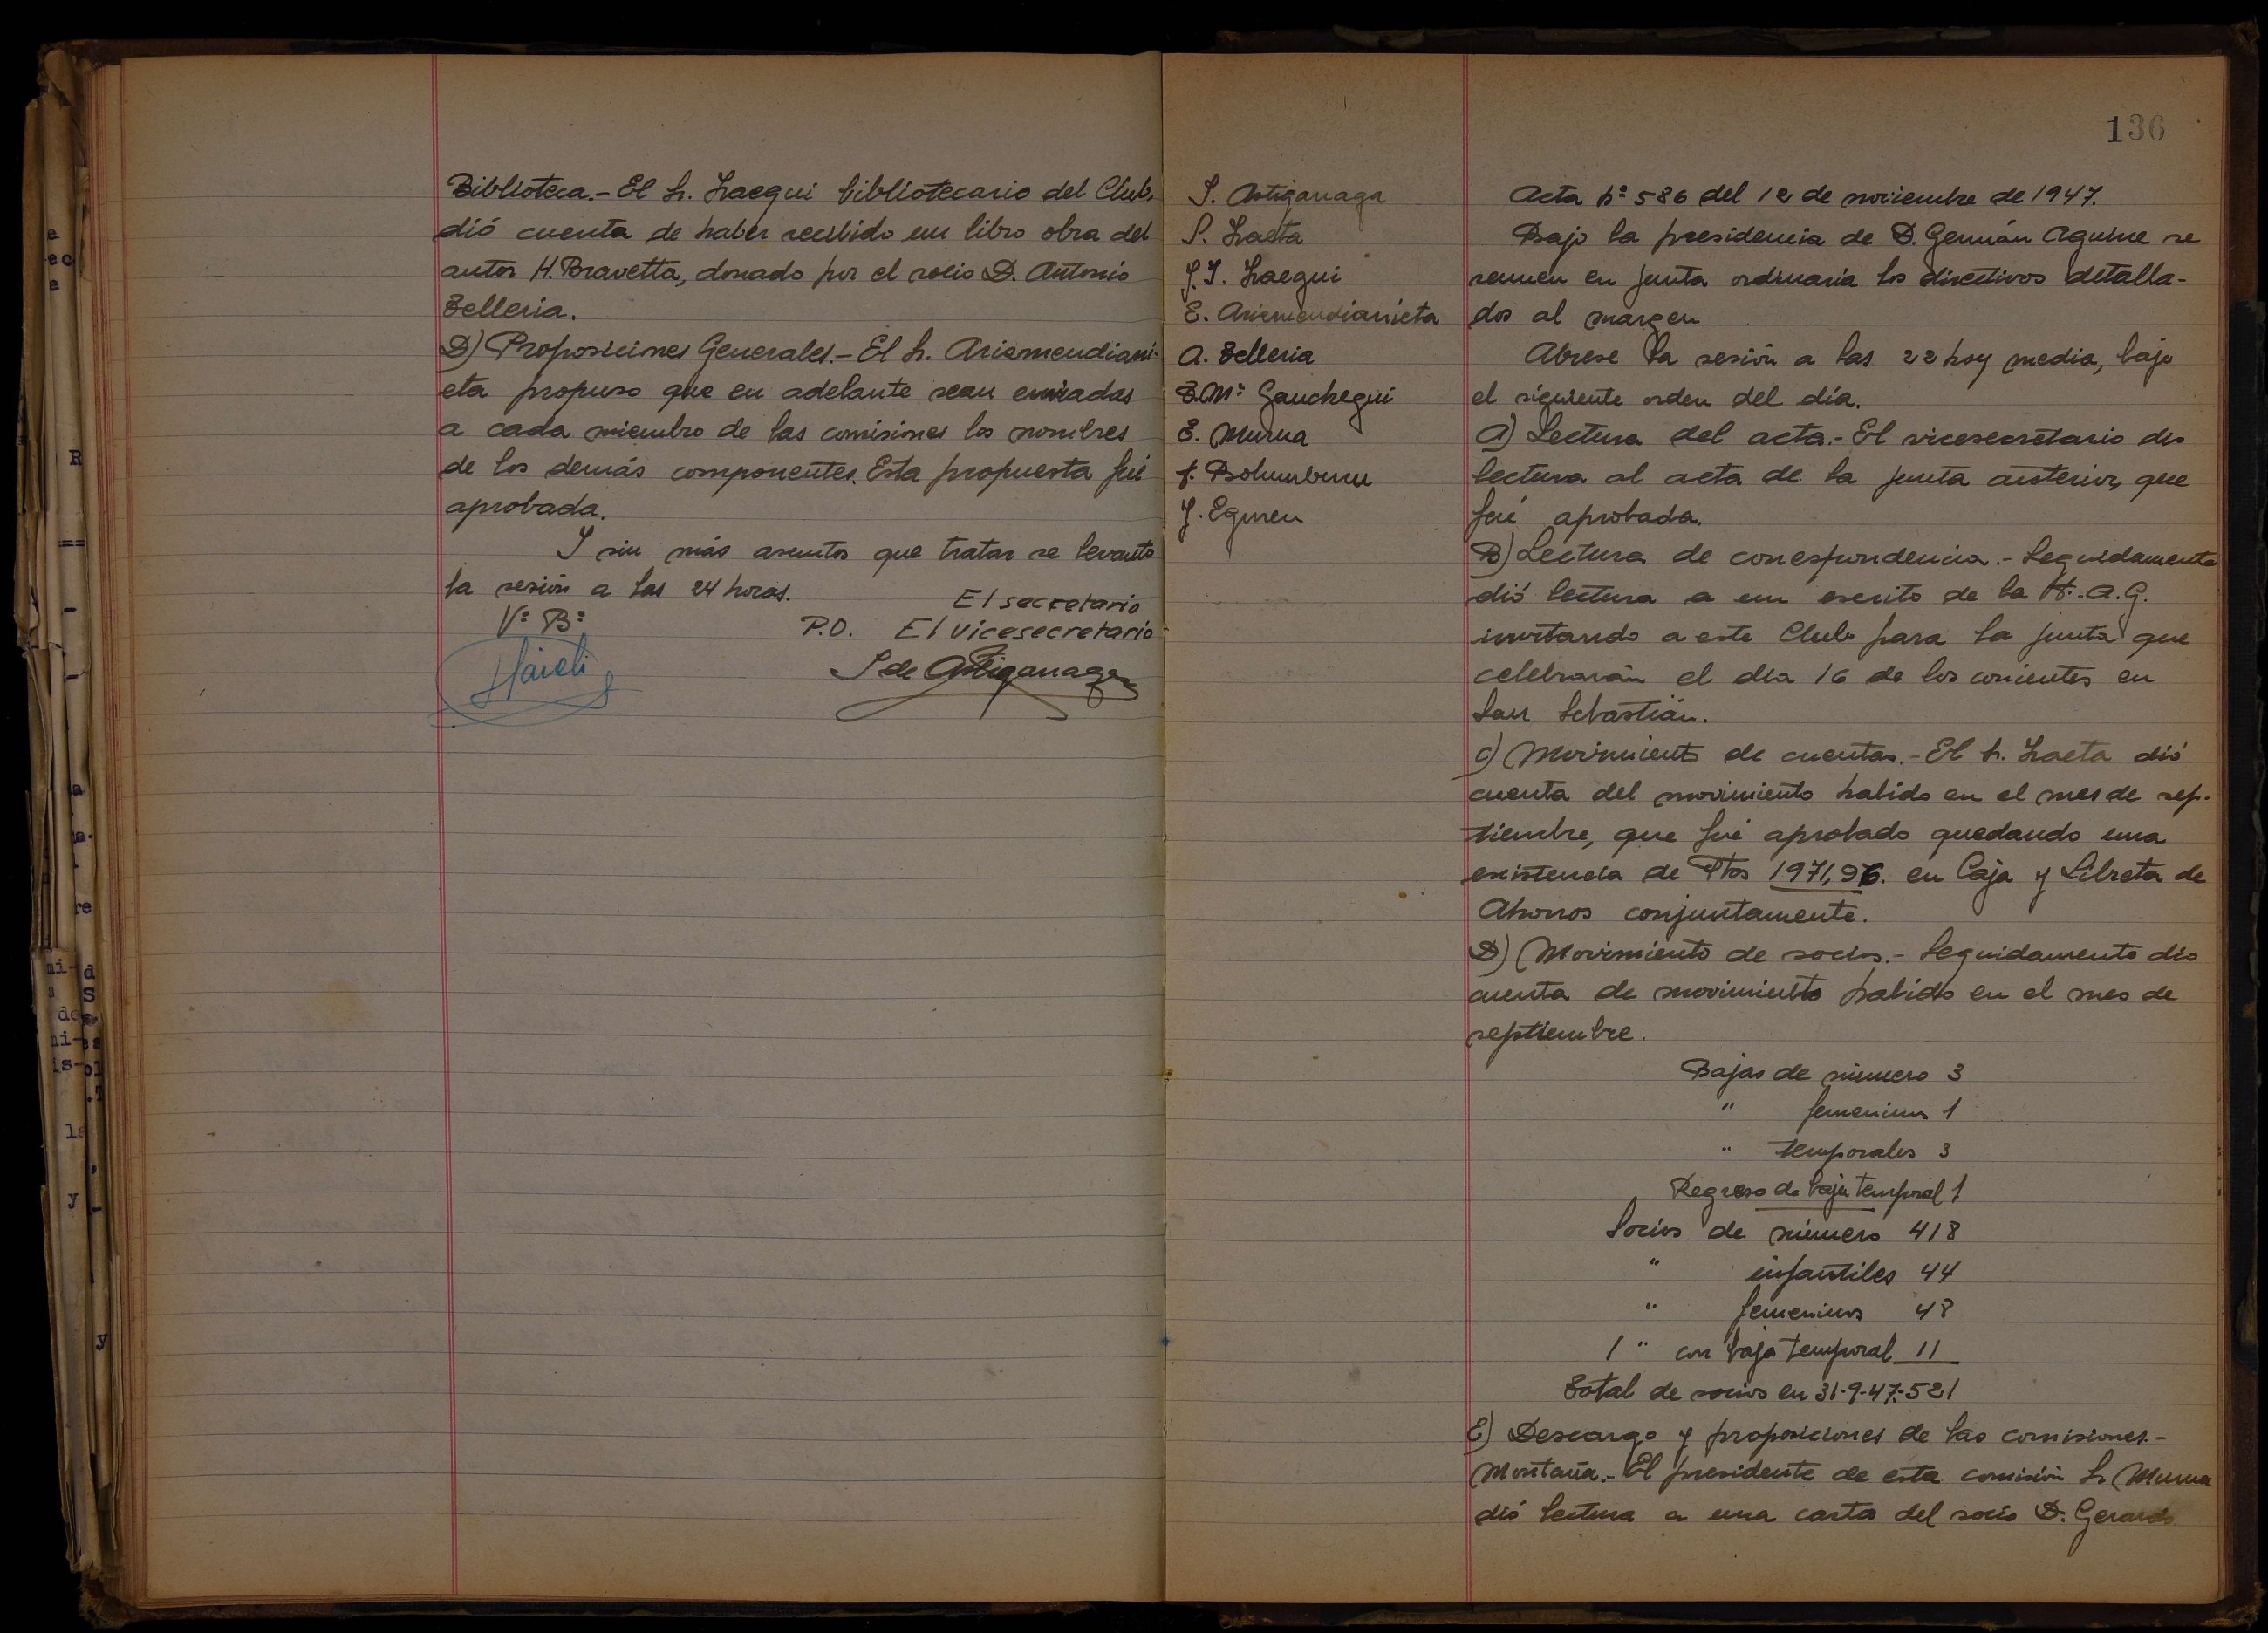 Biblioteca.- El Sr. Loaegui bibliotecario del Club,
dió cuenta de haber recibido un libro obra del
autor H. Bravetta, donado por el socio D. Antonio
Telleria.
D) Proposiciones Generales.- El Sr. Arismendiarri-
eta propuso que en adelante sean enviadas
a cada miembro de las comisiones los nombres
de los demás componentes. Esta propuesta fué
aprobada.
Y sin más asuntos que tratar se levanto
la sesión a las 24 horas.
El secretario
Vº Bº
P.O. El Vicesecretario
S de Astigarraga
136
S. Astigarraga
S. Loaeta
J.I. Loaegui
E. Arismendiarrieta
A. Telleria
T. Mª Ganchegui
E. Murua
J. Bolumburu
J. Eguren
Acta Nº 586 del 12 de noviembre de 1947.
Bajo la presidencia de D. Germán Aguirre se
reunen en junta ordinaria los directivos detalla-
dos al margen
Abrese la sesión a las 22 h. y media, bajo
el siguiente orden del día.
A) Lectura del acta.- El vicesecretario dio
lectura al acta de la junta anterior, que
fué aprobada.
B) Lectura de correspondencia.- Seguidamente
dió lectura a un escrito de la H.A.G.
invitando a este Club para la junta que
celebrarán el día 16 de los corrientes en
San Sebastián.
C) Movimiento de cuentas.- El Sr. Loaeta dió
cuenta del movimiento habido en el mes de sep-
tiembre, que fué aprobado quedando una
existencia de Ptas 1971,96. en Caja y Libreta de
Ahorros conjuntamente.
D) Movimiento de socios.- Seguidamente dio
cuenta de movimiento habido en el mes de
septiembre.
Bajas de número 3
" femeninos 1
" temporales 3
Regreso de baja temporal 1
Socios de número 418
" infantiles 44
" femeninos 48
" con baja temporal 11
Total de socios en 31-9-47:- 521
E) Descargo y proposiciones de las comisiones.-
Montaña.- El presidente de esta comisión Sr. Murua
dió lectura a una carta del socio D. Gerardo